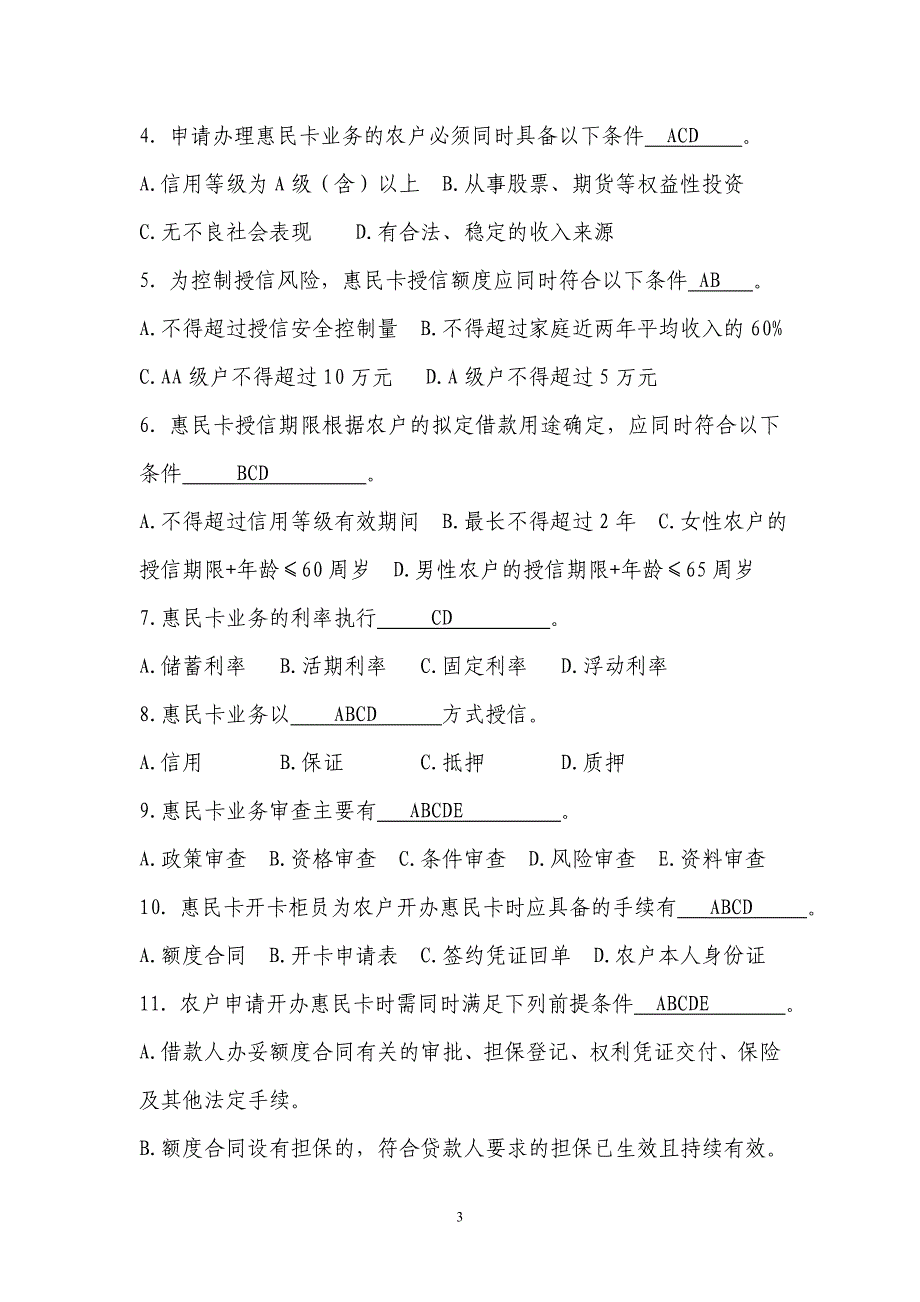 4. 申请办理惠民卡业务的农户必须同时具备以下条件 ACD 。
A.信用等级为 A 级（含）以上 B.从事股票、期货等权益性投资
C.无不良社会表现 D.有合法、稳定的收入来源
5. 为控制授信风险，惠民卡授信额度应同时符合以下条件 AB 。
A.不得超过授信安全控制量 B.不得超过家庭近两年平均收入的 60%
C.AA 级户不得超过 10 万元 D.A 级户不得超过 5 万元
6. 惠民卡授信期限根据农户的拟定借款用途确定，应同时符合以下
条件 BCD 。
A.不得超过信用等级有效期间 B.最长不得超过 2 年 C.女性农户的
授信期限+年龄≤60 周岁 D.男性农户的授信期限+年龄≤65 周岁
7.惠民卡业务的利率执行 CD 。
A.储蓄利率 B.活期利率 C.固定利率 D.浮动利率
8.惠民卡业务以 ABCD 方式授信。
A.信用 B.保证 C.抵押 D.质押
9.惠民卡业务审查主要有 ABCDE 。
A.政策审查 B.资格审查 C.条件审查 D.风险审查 E.资料审查
10. 惠民卡开卡柜员为农户开办惠民卡时应具备的手续有 ABCD 。
A.额度合同 B.开卡申请表 C.签约凭证回单 D.农户本人身份证
11. 农户申请开办惠民卡时需同时满足下列前提条件 ABCDE 。
A.借款人办妥额度合同有关的审批、担保登记、权利凭证交付、保险
及其他法定手续。
B.额度合同设有担保的，符合贷款人要求的担保已生效且持续有效。
3